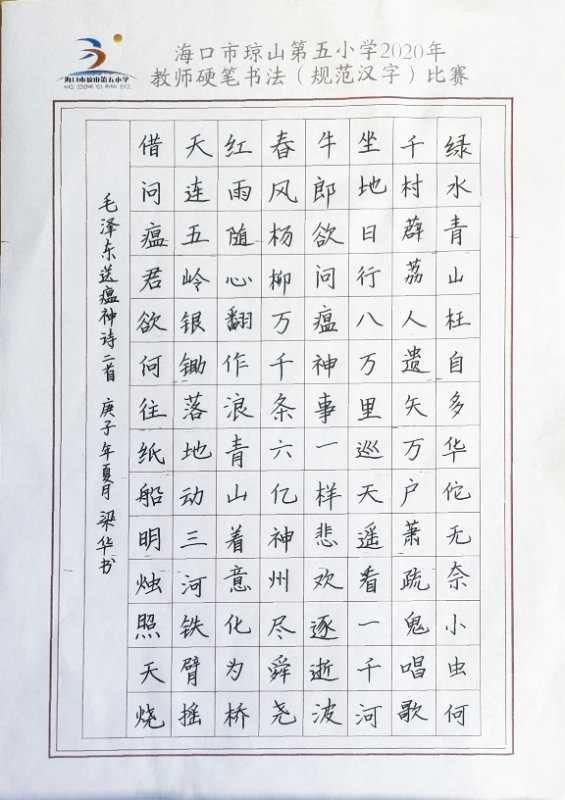 海口市琼山第五小学
海口市琼山第五小学2020年
教师硬笔书法（规范汉字）比赛
绿水青山枉自多华佗无奈小虫何
千村薜荔人遗矢万户萧疏鬼唱歌
坐地日行八万里巡天遥看一千河
牛郎欲问瘟神事一样悲欢逐逝波
春风杨柳万千条六亿神州尽舜尧
红雨随心翻作浪青山着意化为桥
天连五岭银锄落地动三河铁臂摇
借问瘟君欲何往纸船明烛照天烧
毛泽东送瘟神诗二首 庚子年夏月 梁华书